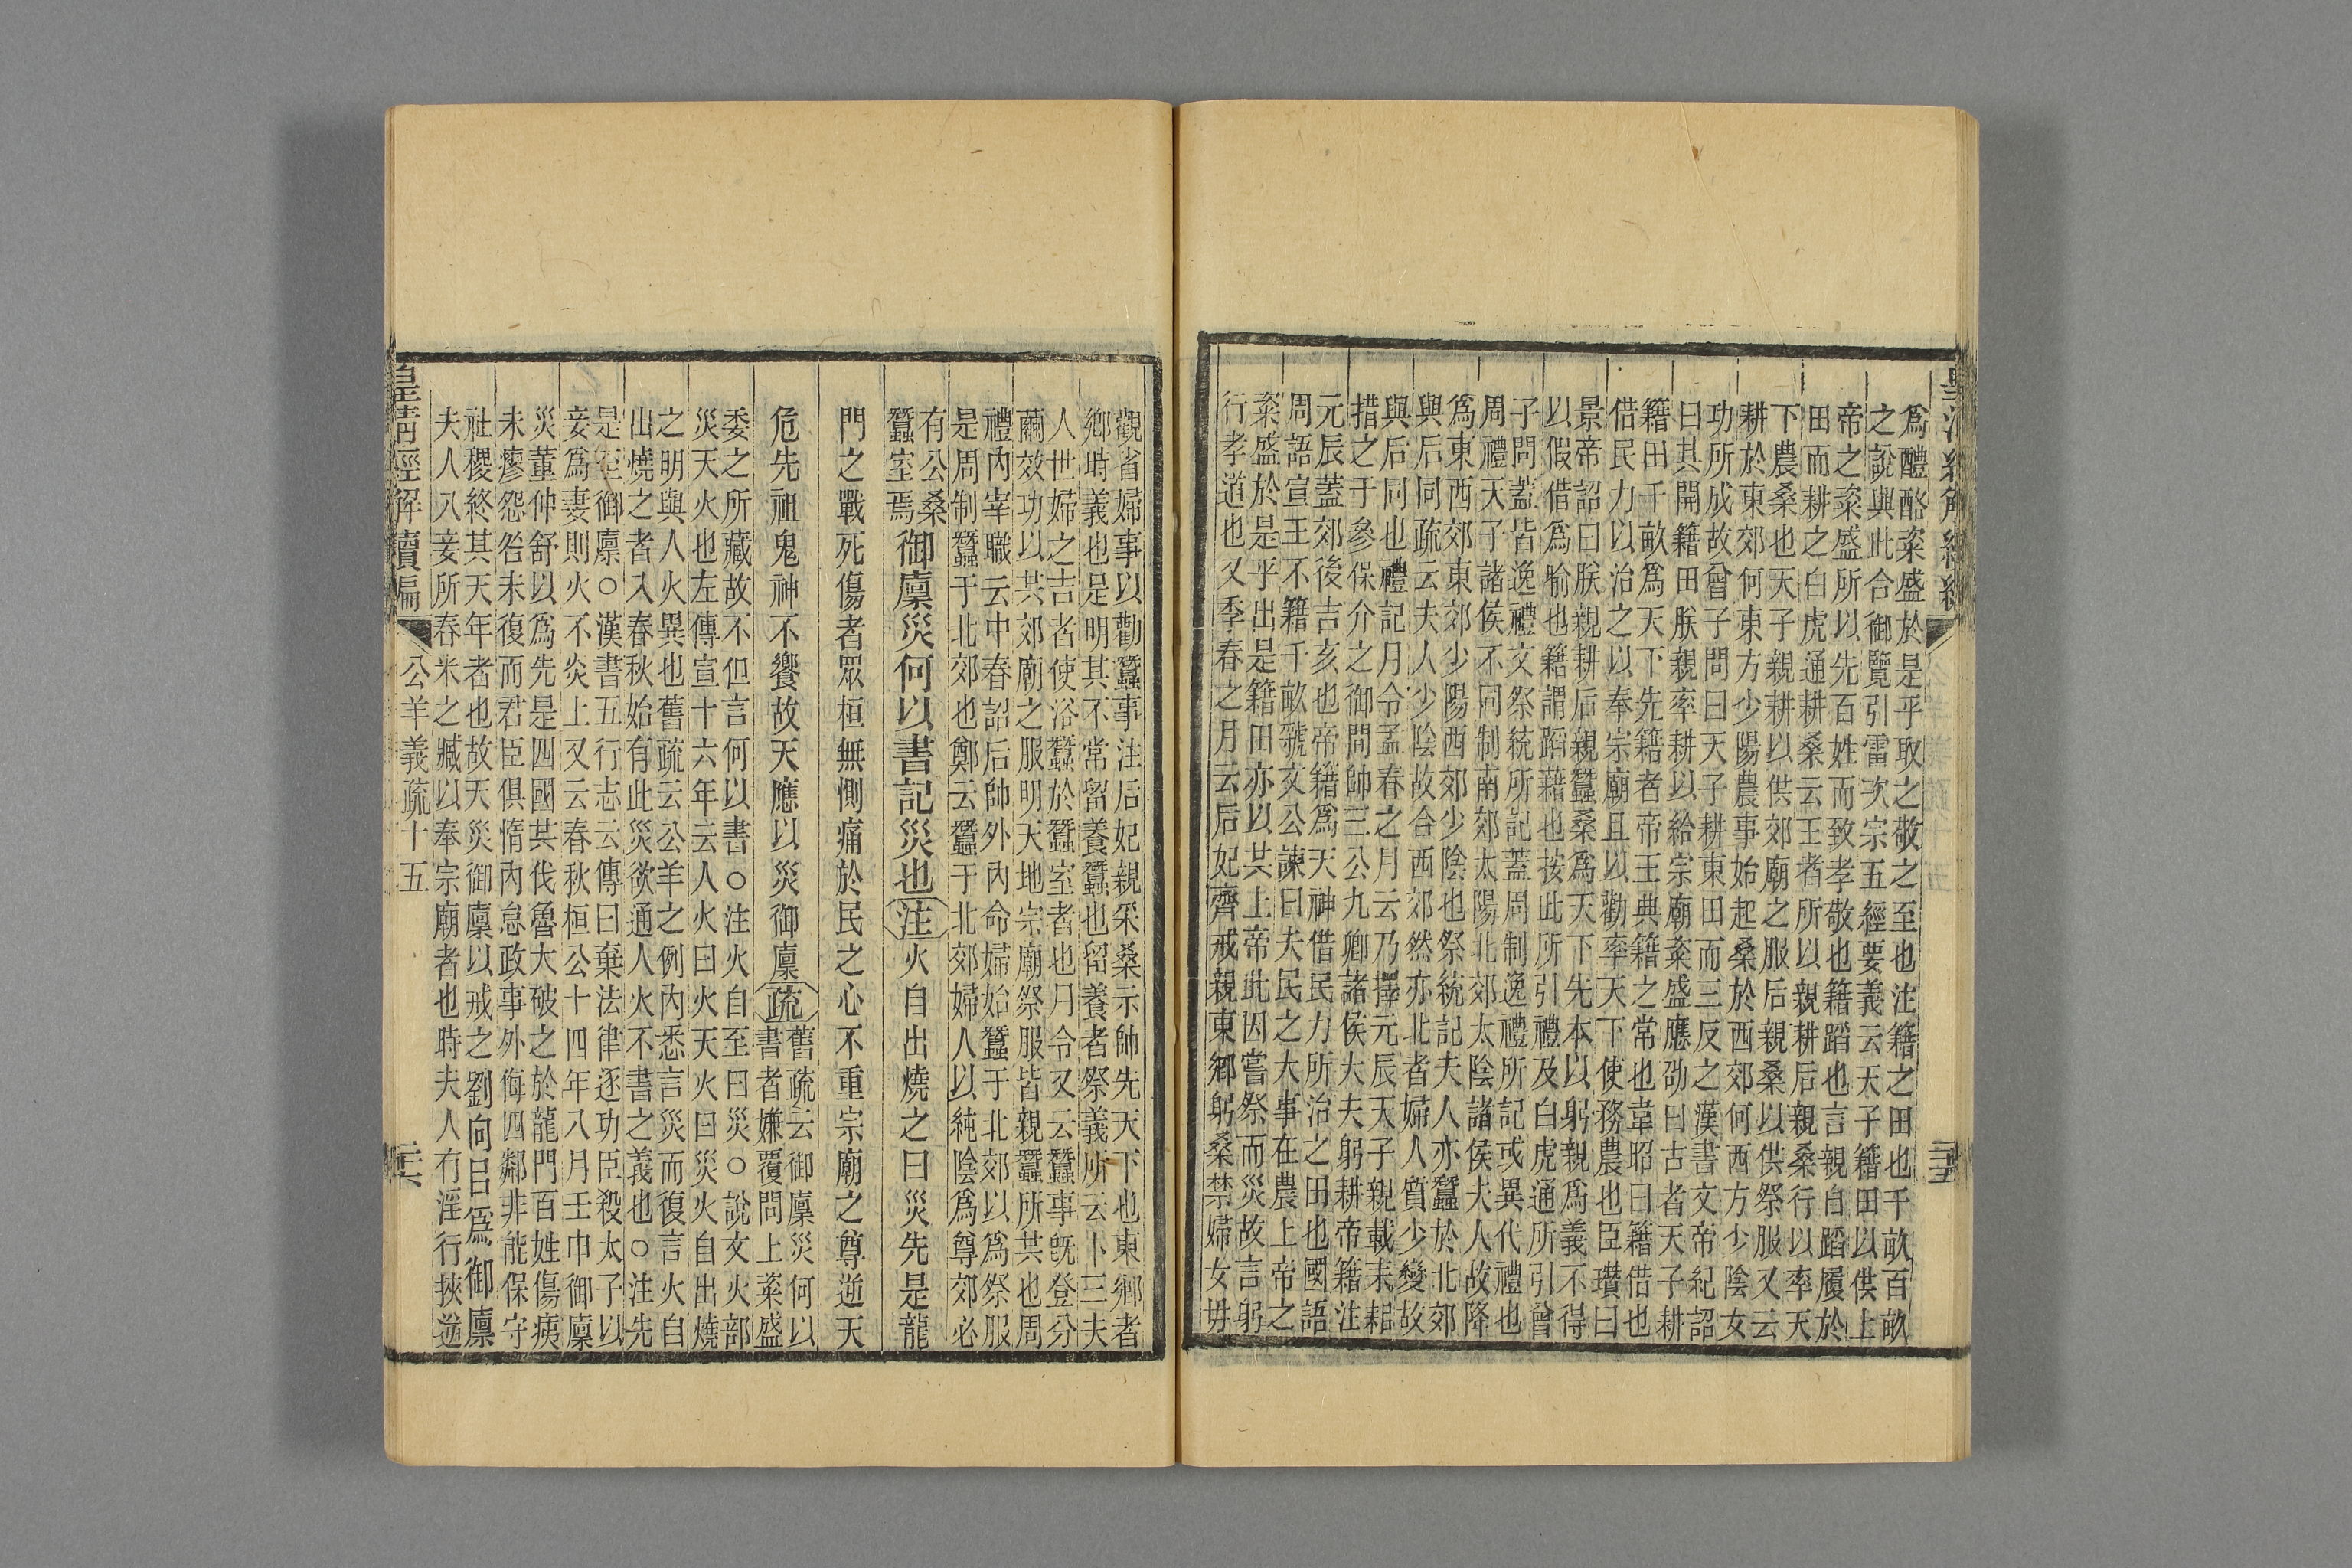 爲醴酪粢盛於是乎取之敬之至也注籍之田也千畝百畝
之說與此合御覽引雷次宗五經要義云天子籍田以供上
帝之粢盛所以先百姓而致孝敬也籍蹈也言親自蹈履於
田而耕之白虎通耕桑云王者所以親耕后親桑行以率天
下農桑也天子親耕以供郊廟之服后親桑以供祭服又云
耕於東郊何東方少陽農事始起桑於西郊何西方少陰女
功所成故曾子問曰天子耕東田而三反之漢書文帝紀詔
曰其開籍田朕親率耕以給宗廟粢盛應劭曰古者天子耕
籍田千畝爲天下先籍者帝王典籍之常也韋昭曰籍借也
借民力以治之以奉宗廟且以勸率天下使務農也臣瓚曰
景帝詔曰朕親耕后親蠶桑爲天下先本以躬親爲義不得
以假借爲喻也籍謂蹈藉也按此所引禮及白虎通所引曾
子問蓋皆逸禮文祭統所記蓋周制逸禮所記或異代禮也
周禮天子諸侯不同制南郊太陽北郊太陰諸侯夫人故降
爲東西郊東郊少陽西郊少陰也祭統記夫人亦蠶於北郊
與后同疏云夫人少陰故合西郊然亦北者婦人質少變故
與后同也禮記月令孟春之月云乃擇元辰天子親載耒耜
措之于參保介之御間帥三公九卿諸侯大夫躬耕帝籍注
元辰蓋郊後吉亥也帝籍爲天神借民力所治之田也國語
周語宣王不籍千畝虢文公諫曰夫民之大事在農上帝之
粢盛於是乎出是籍田亦以共上帝此因嘗祭而災故言躬
行孝道也又季春之月云后妃齊戒親東鄉躬桑禁婦女毋
觀省婦事以勸蠶事注后妃親采桑示帥先天下也東鄉者
鄉時義也是明其不常留養蠶也留養者祭義所云卜三夫
人世婦之吉者使浴蠶於蠶室者也月令又云蠶事旣登分
繭效功以共郊廟之服明天地宗廟祭服皆親蠶所其也周
禮內宰職云中春詔后帥外內命婦始蠶于北郊以爲祭服
是周制蠶于北郊也鄭云蠶于北郊婦人以純陰爲尊郊必
有公桑
蠶室焉御廩災何以書記災也注火自出燒之曰災先是龍
門之戰死傷者眾桓無惻痛於民之心不重宗廟之尊逆天
危先祖鬼神不饗故天應以災御廩疏舊疏云御廩災何以
書者嫌覆問上粢盛
委之所藏故不但言何以書○注火自至曰災○說文火部
災天火也左傳宣十六年云人火曰火天火曰災火自出燒
之明與人火異也舊疏云公羊之例內悉言災而復言火自
出燒之者入春秋始有此災欲通人火不書之義也○注先
是至御廩○漢書五行志云傳曰棄法律逐功臣殺太子以
妾爲妻則火不炎上又云春秋桓公十四年八月壬申御廩
災董仲舒以爲先是四國共伐魯大破之於龍門百姓傷痍
未瘳怨咎未復而君臣俱惰內怠政事外侮四鄰非能保守
社稷終其天年者也故天災御廩以戒之劉向㠯爲御廩
夫人八妾所舂米之臧以奉宗廟者也時夫人有淫行挾逆
皇清經解續編
公羊義疏十五